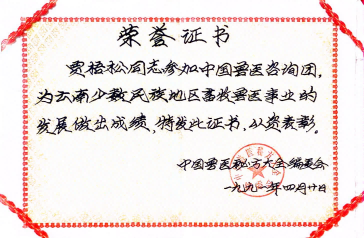 荣誉证书
贾梧松同志参加中国兽医咨询团,
为云南少数民族地区畜牧兽医事业的
发展做出成绩,特发此证书,以资表彰。
中国兽医秘方大全编委会
一九九一年四月廿日